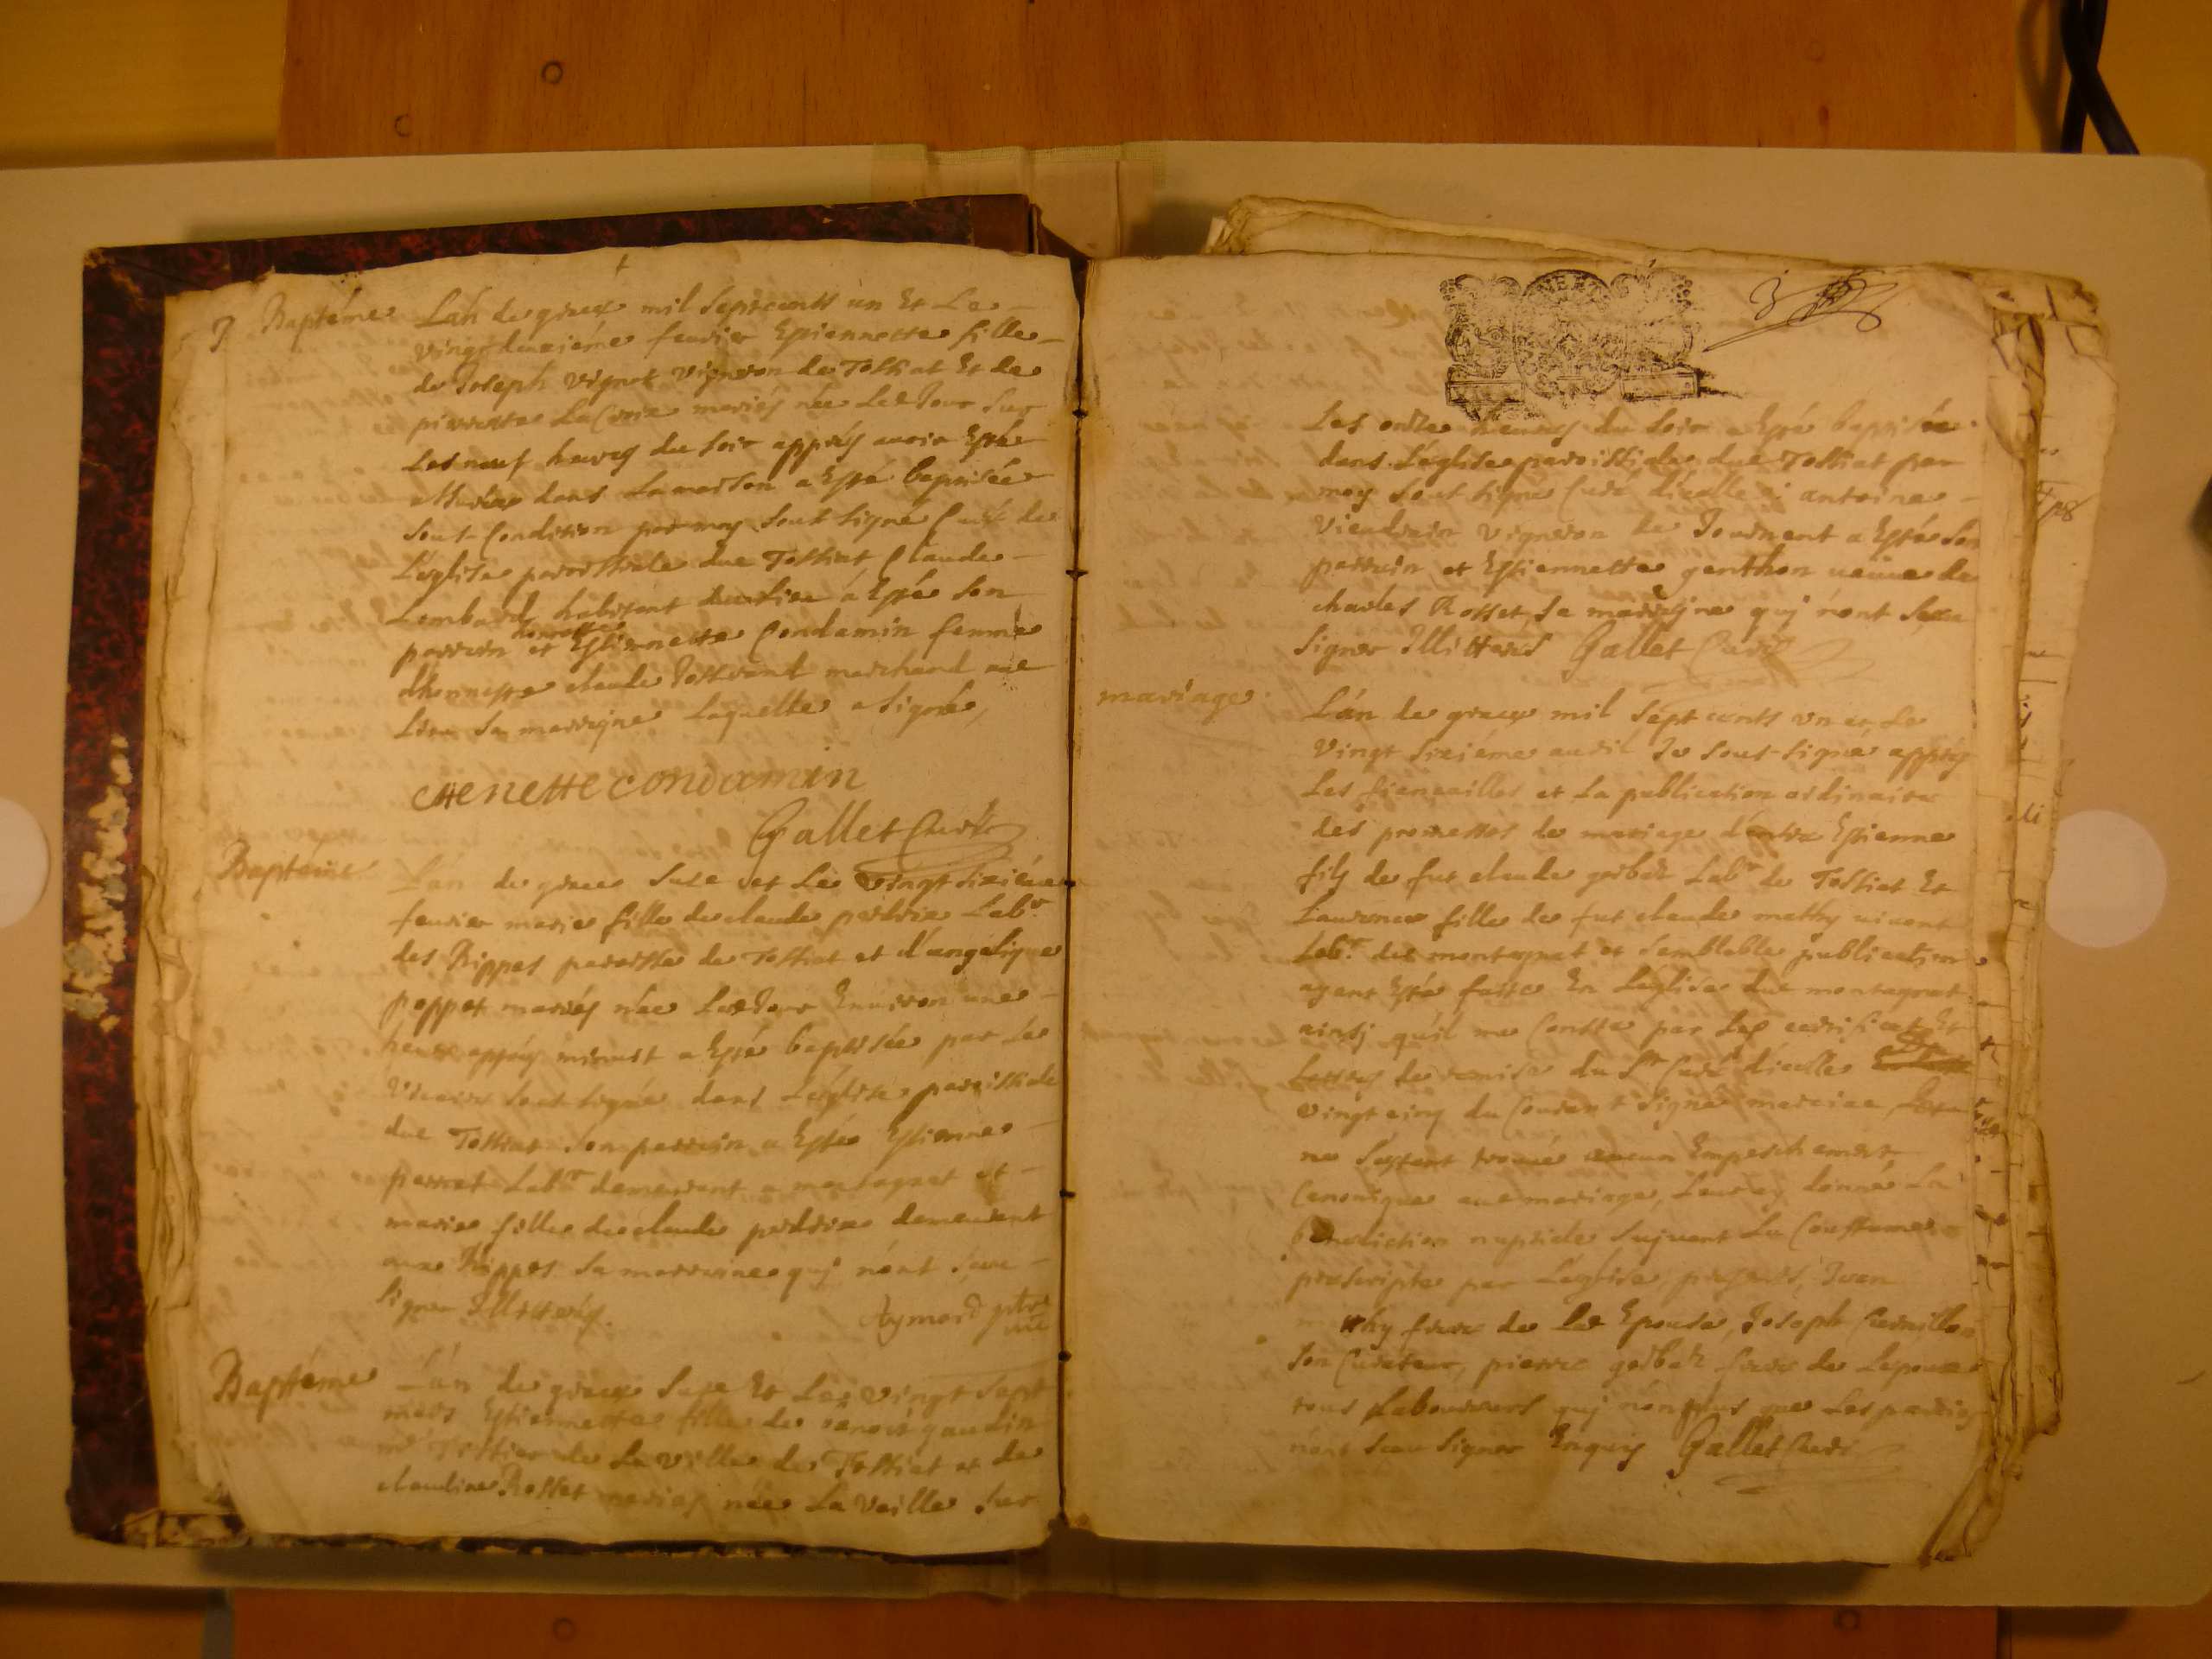 Baptéme
L'an de grace mil septcents un Et Le
vingtdeuxiéme feurier Estiennette fille
de Joseph vignet vigneron de Tossiat Et de
pierrette LaCroix mariés née Led Jour sur
Les neuf heures du soir apprés auoir Esté
dans La maison a Esté baptisée
sout-Condition par moy sout signé Curé de
L'églisse paroissiale dud Tossiat Claude
Lombard habitant aud lieu á Esté son
parrein et honneste Estiennette Condamin femme
d'honneste claude marchand aud
Lieu sa marreyne Laquelle a signé,
etienette condamin
Gallet Curé
Baptéme
L'an de grace susd et Le vingt sixiéme
feurier marie fille de claude perdrix Labr
des Rippes paroisse de Tossiat et d'angelique
poppet mariés née Led Jour Enuiron une
heure apprés minuit a Esté baptisée par Le
Vicaire sout signé dans L'églisse paroissiale
dud Tossiat son parrein a Esté Estienne
perret Labr demeurant a montagnat et
marie fille de claude perdrix demeurant
aux Rippes sa marreine quj n'ont sceu
signer Illitterés.
Aymard ptre
vic
Baptéme
L'án de grace susd Et Le vingt sept
mars Estiennette fille de benoit gaudin
de La ville de Tossiat et de
claudine Rosset mariés née La veille sur
3
Les onze heures du soir a Esté baptisée
dans L'églisse paroissiale dud Tossiat par
moy sout signé Curé d'icelle antoine
Vieudrin vigneron de Journent a Esté son
parrein et Estiennette genthon ueuue de
charles Rosset sa marreyne quj n'ont sceu
signer Illitterés Gallet Curé
mariage
L'án de grace mil sept cents vn et Le
vingt sixiéme auril Je sout-signé apprés
Les fiençailles et La publication ordinaire
des promesses de mariage d'entre Estienne
fils de fut claude Labr de Tossiat Et
Laurence fille de fut claude mathy uiuant
Labr de montagnat et semblable publication
ayant Esté faitte En L'églisse dud montagnat
ainsj qu'il me Conste par Les certificat Et
Lettres de remise du Sr Curé d'icelle
vingt cinq du Courant signé
ne s'estant trouué aucun Empeschement
Canonique aud mariage, Leur ay donné La
bénédiction nuptiale sujuant La Coustume
prescripte par L'églisse, présents, Jean
mathy frere de Lad Epouse, Joseph
son Curateur, pierre frere de L'epoux
tous Laboureurs quj non plus que Les parties
n'ont sceu signer Enquis Gallet Curé